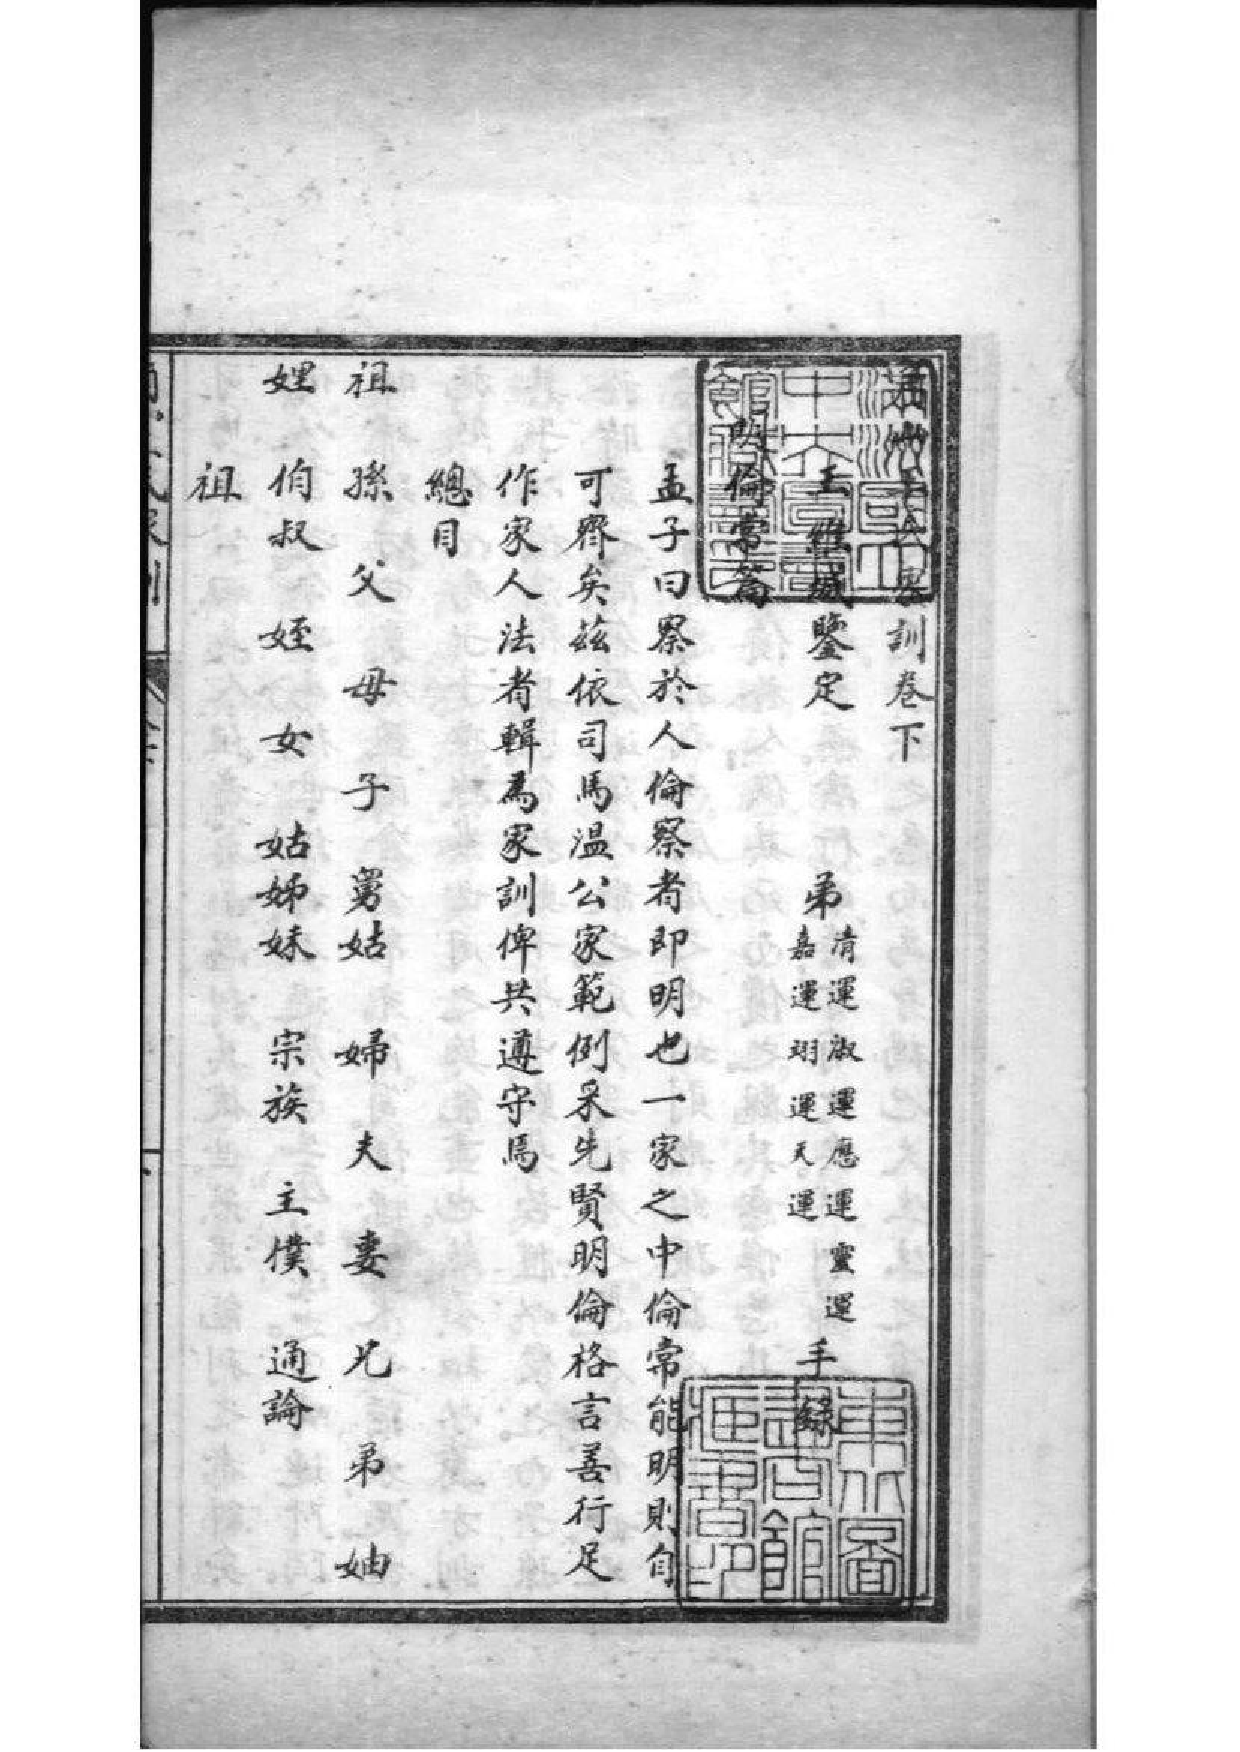 王氏家訓卷下
王維鑒定 弟清運淑運應運靈運嘉運翊運天運手錄
明倫常篇
孟子曰察於人倫察者即明也一家之中倫常能明則自
可齊矣茲依司馬温公家範例采先賢明倫格言善行足
作家人法者輯為家訓俾共遵守焉
總目
祖 孫 父 母 子 舅姑 婦 夫 妻 兄 弟 妯
娌 伯叔 姪 女 姑姊妹 宗族 主僕 通論
祖
滿洲國立中央圖書館籌
東北圖書館所藏書印